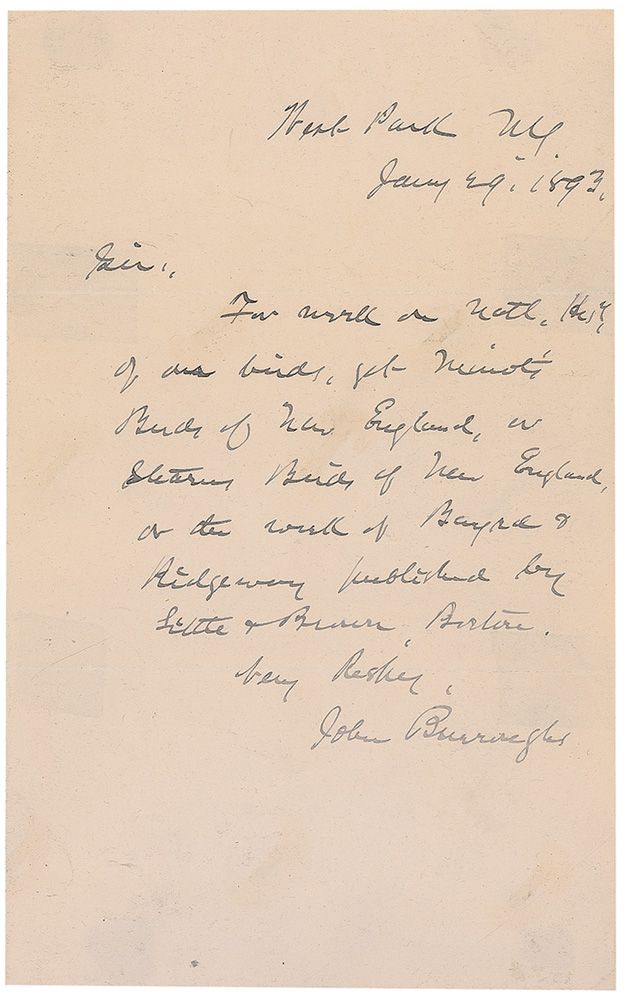 West Park NY.
Jany 29. 1893.
Sir.,
For work on Natl. Hisy,
of our birds, get Minot's
Birds of New England, or
Stearns Birds of New England,
or the work of Bayrd &
Ridgeway published by
Little & Brown, Boston.
Very Respy,
John Burroughs